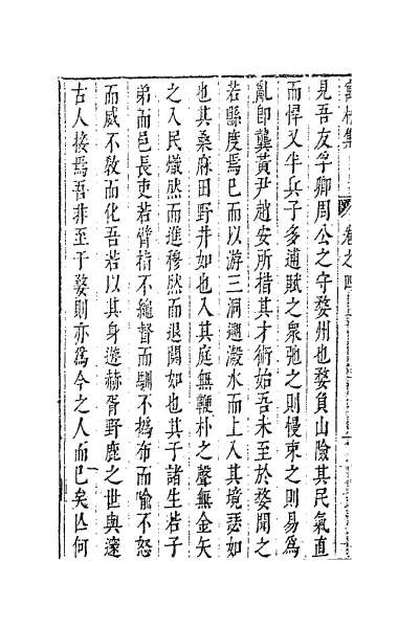 卷之四
見吾友孚卿周公之守婺州也婺負山險其民氣直
而悍又半兵子多逋賦之衆弛之則慢束之則易爲
亂卽龔黃尹趙安所措其才術始吾未至於婺聞之
若縣度焉已而以游三洞遡瀫水而上入其境瑟如
也其桑麻田野井如也入其庭無鞭朴之聲無金矢
之入民熾然而進穆然而退閑如也其子諸生若子
弟而邑長吏若臂指不繩督而馴不撝布而喻不怒
而威不敎而化吾若以其身遊赫胥野鹿之世與邃
古人接焉吾非至于婺則亦爲今之人而已矣亾何